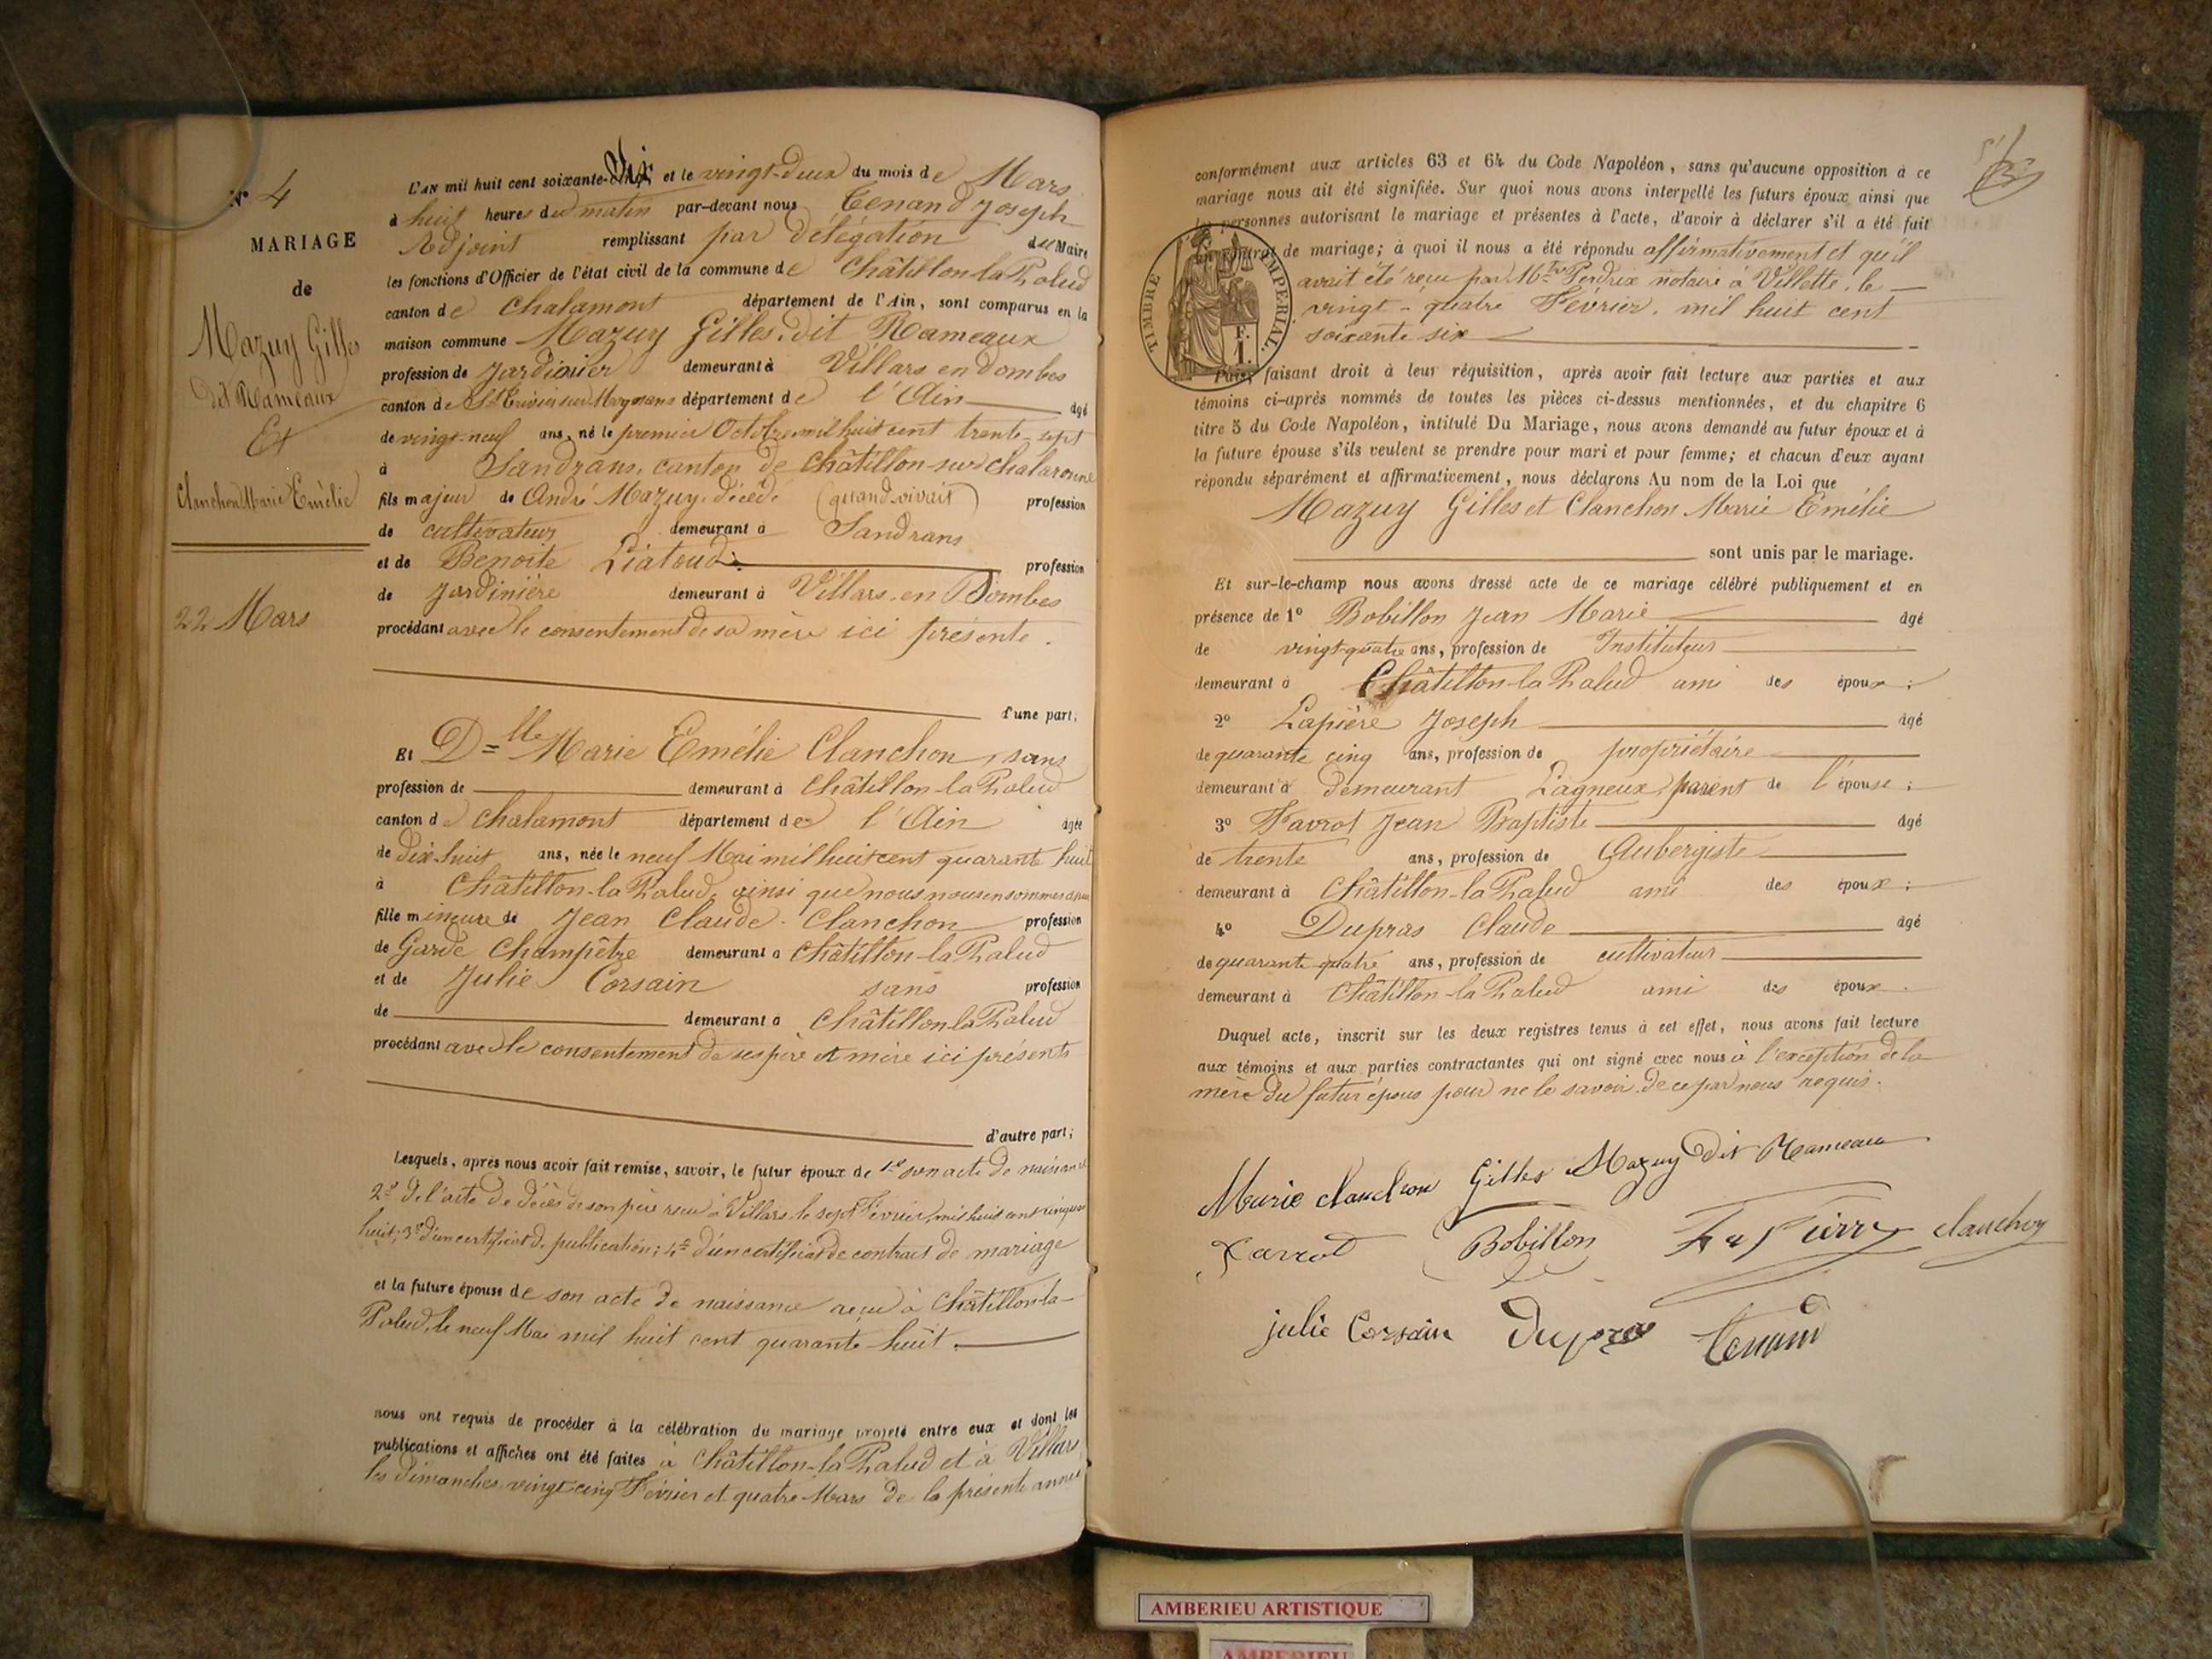 N° 4
MARIAGE
de
Mazuy Gilles
dit Rameaux
Et
Clanchon Marie Emélie
22 Mars
L'AN mil huit cent soixante-Six et le vingt-deux du mois de Mars
à huit heures du matin par-devant nous Tenand Joseph
Adjoint remplissant par délégation du Maire
les fonctions d'Officier de l'état civil de la commune de Châtillon la Palud
canton de Chalamont département de l'Ain, sont comparus en la
maison commune Mazuy Gilles. dit Rameaux
profession de Jardinier demeurant à Villars en Dombes
canton de St Trivier sur Moignans département de l'Ain âgé
de vingt-neuf ans, né le premier Octobre mil huit cent trente-sept
à Sandrans, canton de Châtillon-sur-Chalaronne
fils majeur de André Mazuy. décédé (quand vivait) profession
de cultivateur demeurant à Sandrans
et de Benoite Liatoud profession
de Jardinière demeurant à Villars-en Dombes
procédant avec le consentement de sa mère ici présente.
d'une part;
Et Dlle Marie Emélie Clanchon, sans
profession de demeurant à Châtillon-la Palud
canton de Chalamont département de l'Ain âgée
de dix-huit ans, née le neuf Mai mil huit cent quarante huit
à Châtillon-la Palud, ainsi que nous nous en sommes
fille mineure de Jean Claude Clanchon profession
de Garde Champêtre demeurant à Châtillon-la Palud
et de Julie Corsain sans profession
de demeurant à Châtillon-la Palud
procédant avec le consentement de ses père et mère ici présents
d'autre part;
Lesquels, après nous avoir fait remise, savoir, le futur époux de 1° son acte de naissance
2° de l'acte de décès de son père reçu à Villars le sept Février mil huit cent cinquante
huit; 3° d'un certificat de publication; 4° d'un certificat de contrat de mariage
et la future épouse de son acte de naissance reçu à Châtillon-la-
Palud, le neuf Mai mil huit cent quarante-huit.
nous ont requis de procéder à la célébration du mariage projeté entre eux et dont les
publications et affiches ont été faites à Châtillon-la Palud et à Villars
les dimanches vingt-cinq Février et quatre Mars de la présente année
conformément aux articles 63 et 64 du Code Napoléon, sans qu'aucune opposition à ce
mariage nous ait été signifiée. Sur quoi nous avons interpellé les futurs époux ainsi que
les personnes autorisant le mariage et présentes à l'acte, d'avoir à déclarer s'il a été fait
un contrat de mariage; à quoi il nous a été répondu affirmativement et qu'il
avait été reçu par Mtre Perdrix notaire à Villette, le
vingt-quatre Février. mil huit cent
soixante six
TIMBRE IMPÉRIAL.
F.
1.
Puis, faisant droit à leur réquisition, après avoir fait lecture aux parties et aux
témoins ci-après nommés de toutes les pièces ci-dessus mentionnées, et du chapitre 6
titre 5 du Code Napoléon, intitulé Du Mariage, nous avons demandé au futur époux et à
la future épouse s'ils veulent se prendre pour mari et pour femme; et chacun d'eux ayant
répondu séparément et affirmativement, nous déclarons Au nom de la Loi que
Mazuy Gilles et Clanchon Marie Emélie
sont unis par le mariage.
Et sur-le-champ nous avons dressé acte de ce mariage célébré publiquement et en
présence de 1° Bobillon Jean Marie âgé
de vingt-quatre ans, profession de Instituteur
demeurant à Châtillon-la Palud ami des époux;
2° Lapière Joseph âgé
de quarante cinq ans, profession de propriétaire
demeurant à demeurant Lagneux, parent de l'épouse;
3° Favrot Jean Baptiste âgé
de trente ans, profession de Aubergiste
demeurant à Châtillon-la Palud ami des époux;
4° Dupras Claude âgé
de quarante quatre ans, profession de cultivateur
demeurant à Châtillon-la Palud ami des époux.
Duquel acte, inscrit sur les deux registres tenus à cet effet, nous avons fait lecture
aux témoins et aux parties contractantes qui ont signé avec nous à l'exception de la
mère du futur époux pour ne le savoir de ce par nous requis.
Marie clanchon Gilles Mazuy Dit Rameaux
Favrot Bobillon clanchon
julie Corsain Dupras Tenand
AMBERIEU ARTISTIQUE
AMBERIEU